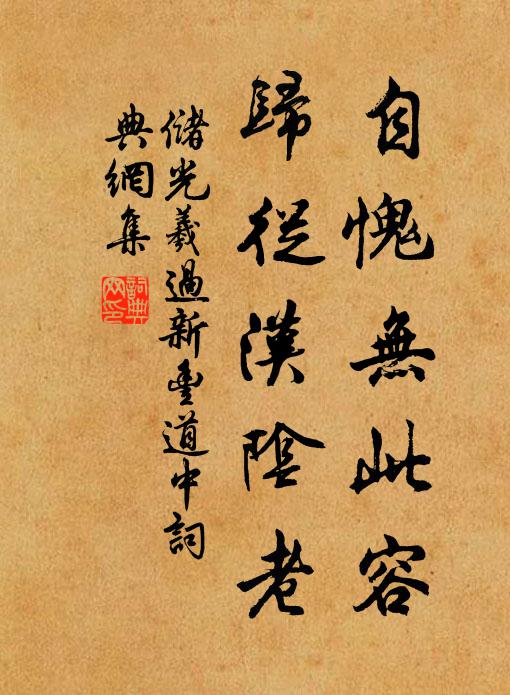 自愧無此容
歸從漢陰老
儲光羲過新豐道中詞
典網集
詞典
网印